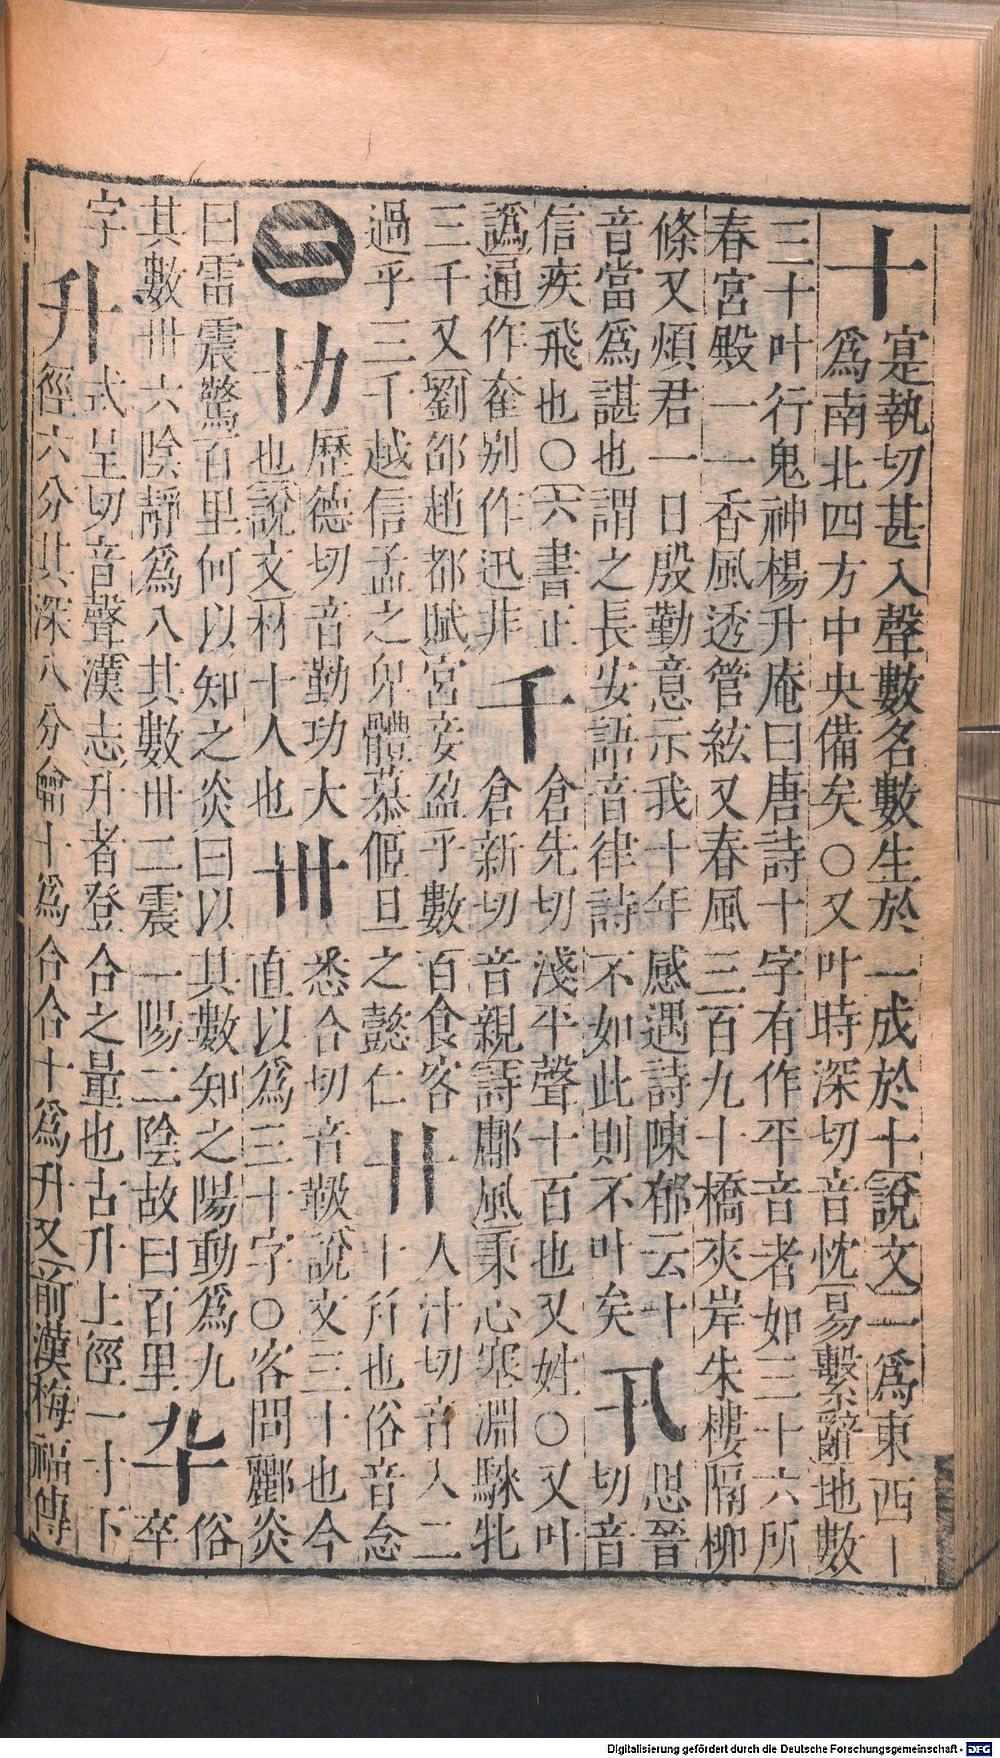 十
寔執切甚入聲數名數生於一成於十說文一為東西丨
為南北四方中央備矣○又叶時深切音忱易繫辭地數
三十叶行鬼神楊升庵曰唐詩十字有作平音者如三十六所
春宮殿一一香風透管絃又春風三百九十橋夾岸朱樓隔柳
條又煩君一日殷勤意示我十年感遇詩陳郁云十
音當為諶也謂之長安語音律詩不如此則不叶矣
卂
思晉
切音
信疾飛也○六書正
譌通作奞別作迅非
千
倉先切淺平聲十百也又姓○又叶
倉新切音親詩鄘風秉心塞淵騋牝
三千又劉邵趙都賦宮妾盈乎數百食客
過乎三千越信孟之卑體慕傴旦之懿仁
廾
人汁切音入二
十幷也俗音念
二
㔹
歷德切音勒功大
也說文材十人也
卅
悉合切音靸說文三十也今
直以為三十字○客問酈炎
曰雷震驚百里何以知之炎曰以其數知之陽動為九
其數卅六陰靜為八其數卅二震一陽二陰故曰百里
卆
俗
卒
字
升
式呈切音聲漢志升者登合之量也古升上徑一寸下
徑六分其深八分龠十為合合十為升又前漢梅福傳
Digitalisierung gefördert durch die Deutsche Forschungsgemeinschaft - DFG